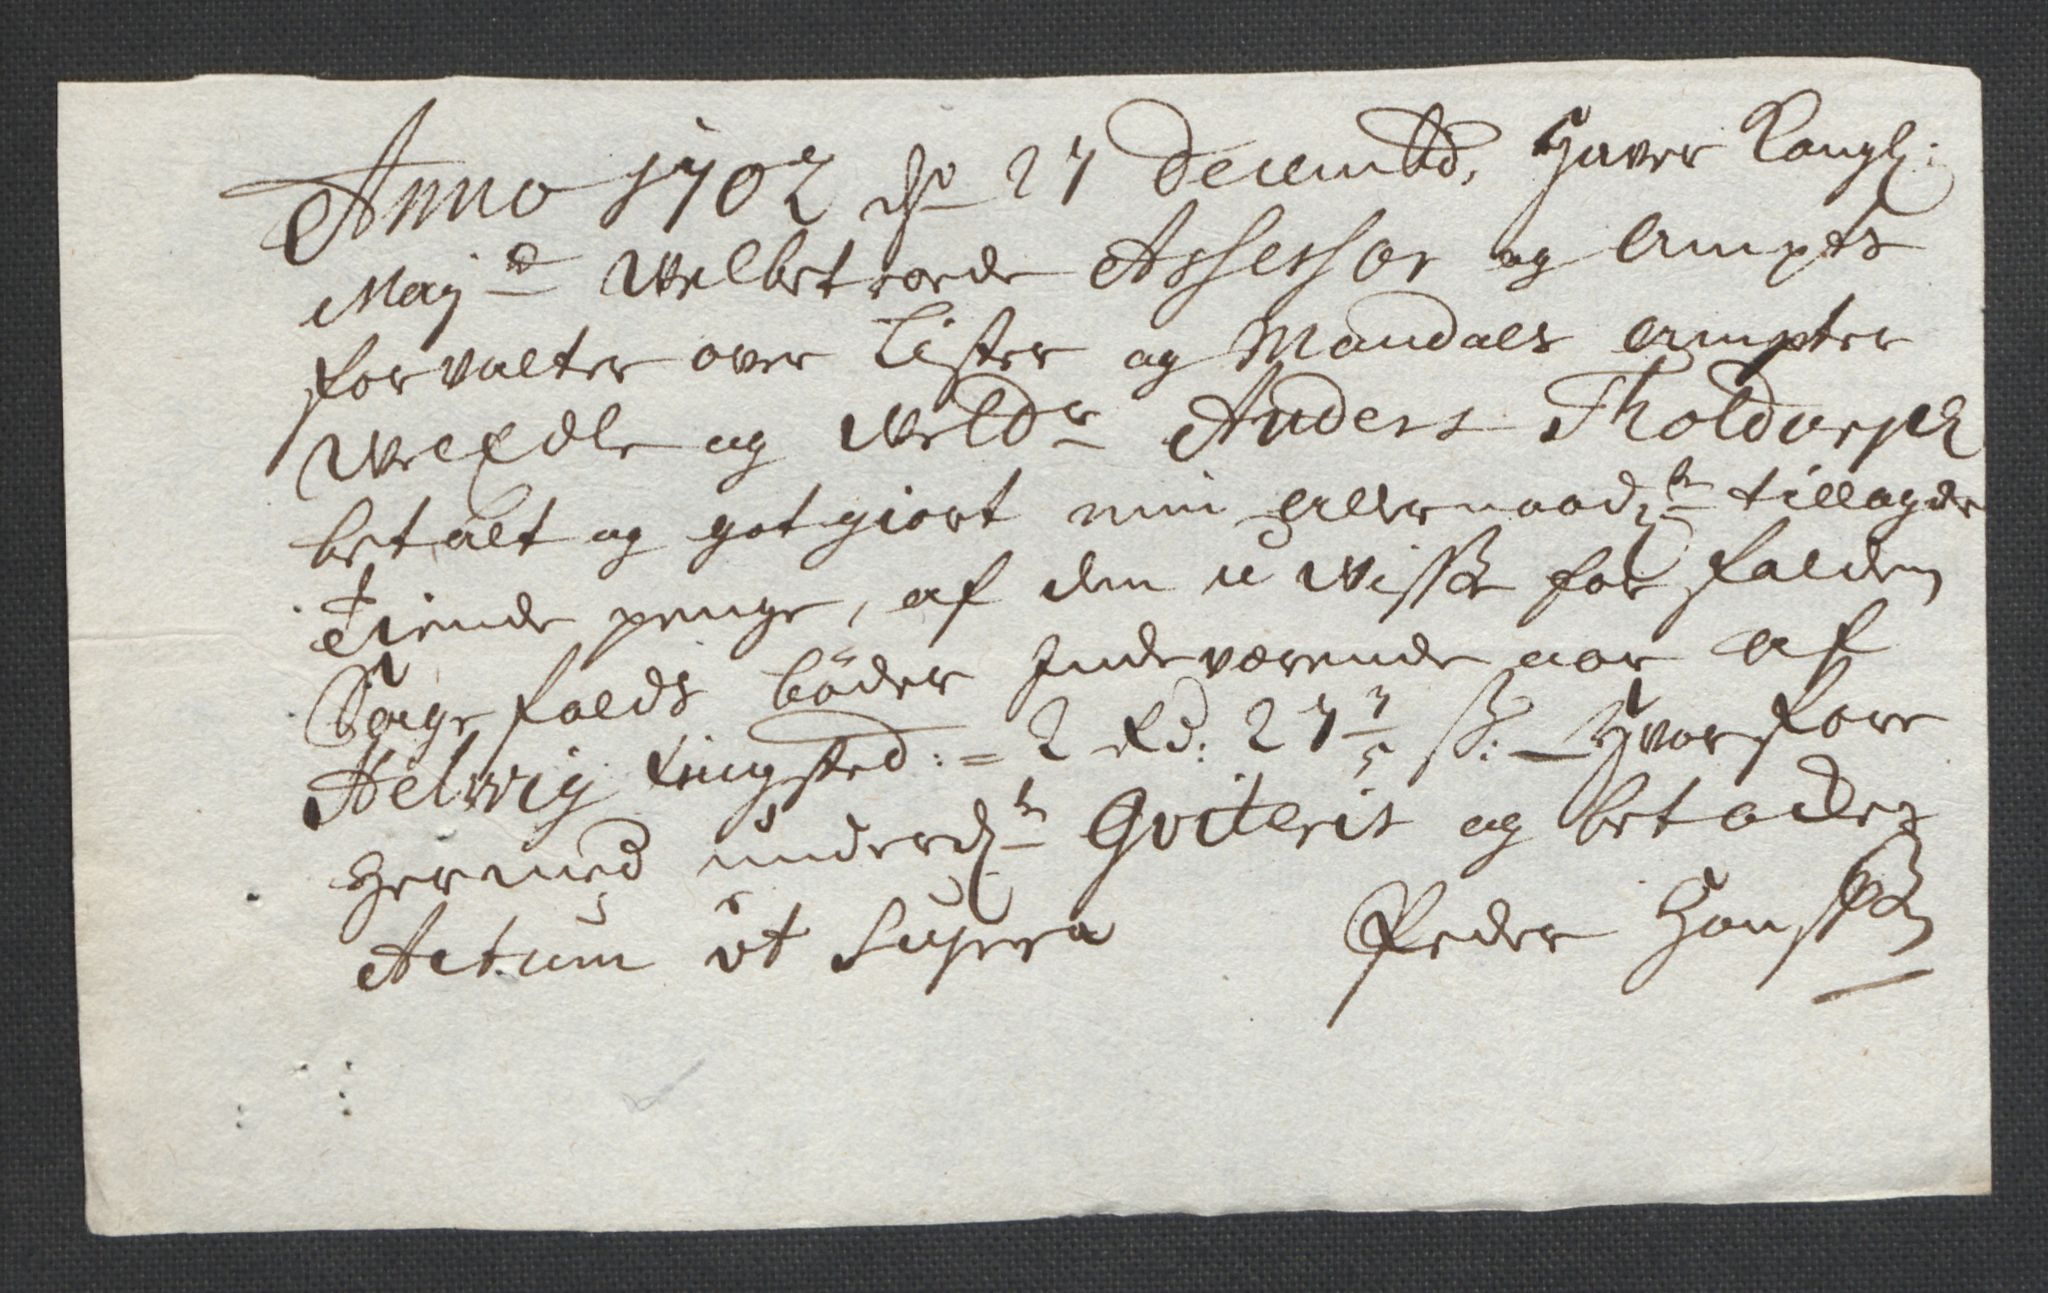 Anno 1702 dend 27 Decembd, Haver Kongl:
Mayd Velbetroede Assessor og Ampts
forvalter over Lister og Mandals Ampter
Velædle og Veldr Anders Tholdorph
betalt og gotgiort min allernaadl tillagde
Tiende penge, af den uvisse for falden
Sagefalds böder Indeværende aar af
Helvig Kingsted: = 2 Rd: 27 3/5 ß: Hvorfore
hermed underdl Qviteris og betackes
Actum ut Supra Peder Hanssøn